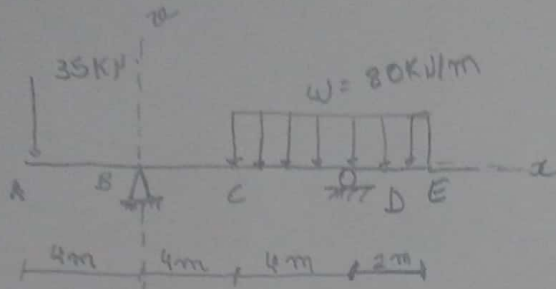 35KN
W = 80KN/m
A B C D E x
4m 4m 4m 2m